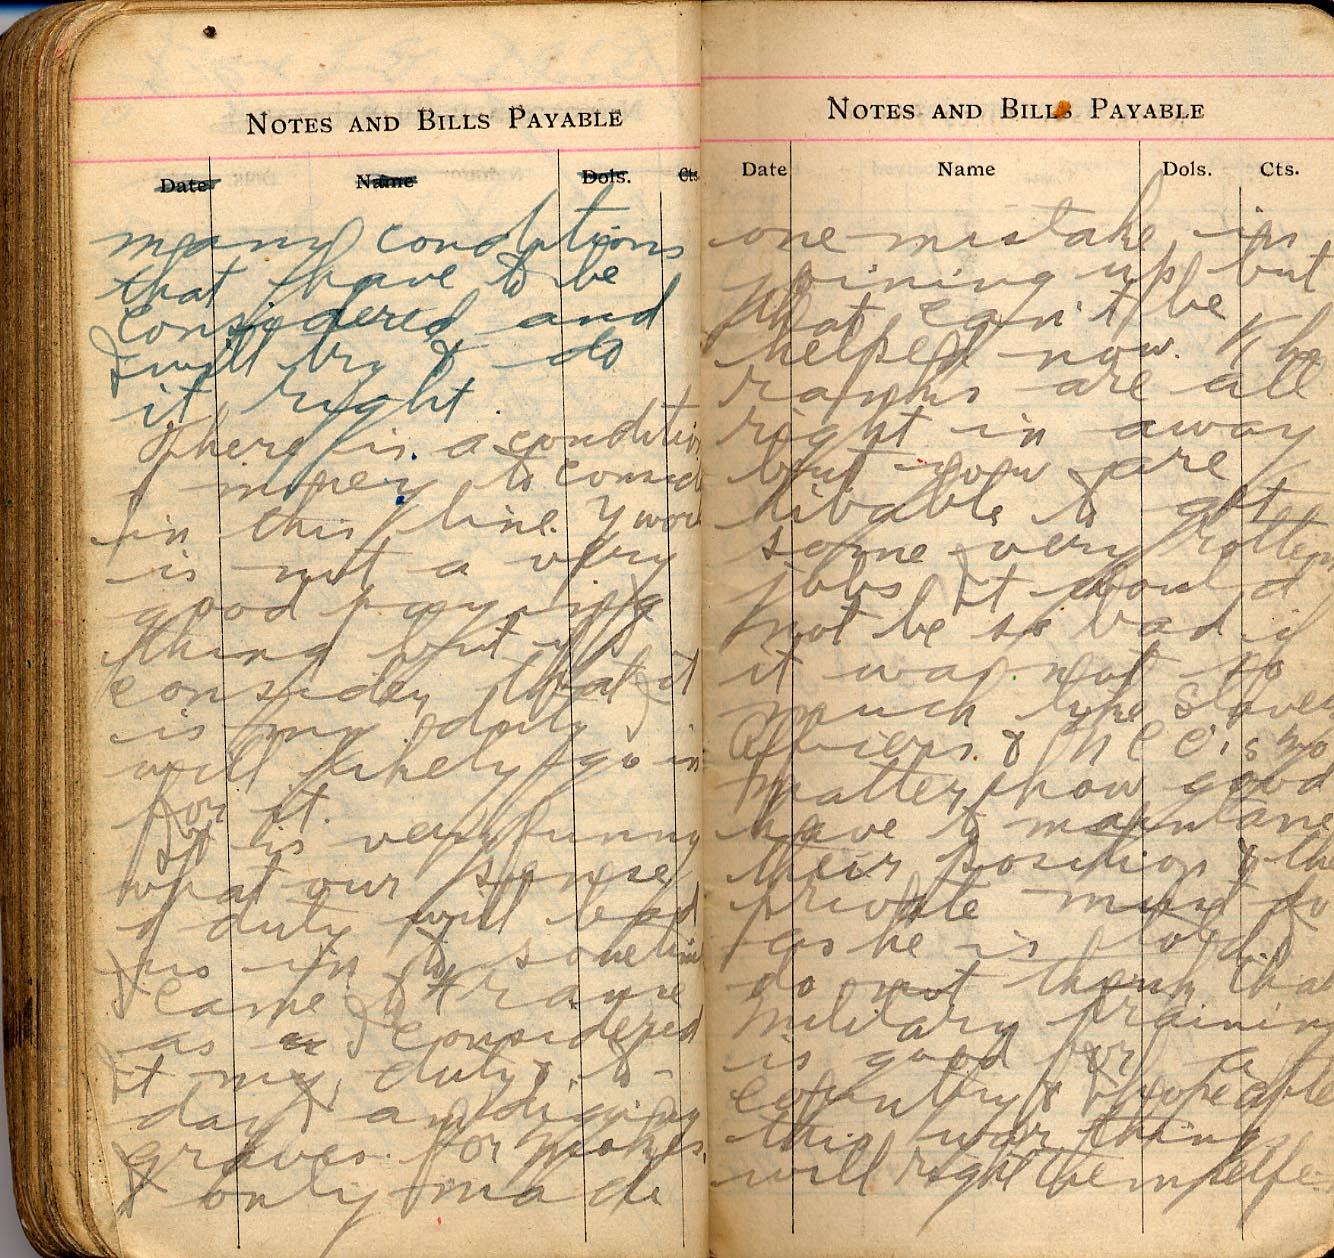 NOTES AND BILLS PAYABLE
Date Name Dols. Cts
many conditions
that have to be
considered and
I will try & do
it right.
There is a condition
in this line. Y work
is not a very
good paying
thing but I
consider that it
is my duty I
will likely go in
for it.
It is very funny
what our sense
of duty will lead
us in to sometime
I came to France
as I considered
it my duty & to-
day I am digging
graves. for
I only made
NOTES AND BILLS PAYABLE
Date Name Dols. Cts.
one mistake in
joining up but
that can't be
helped now. The
ranks are all
right in away
but you are
liable to get
some very rotten
jobs It would
not be so bad if
it was not so
much like slaves
Officers & N C O's no
matter how good
have to maintane
their position & the
private must do
as he is told. I
do not think that
military training
is good for a
country & I hope after
this war thing
will right themselfe